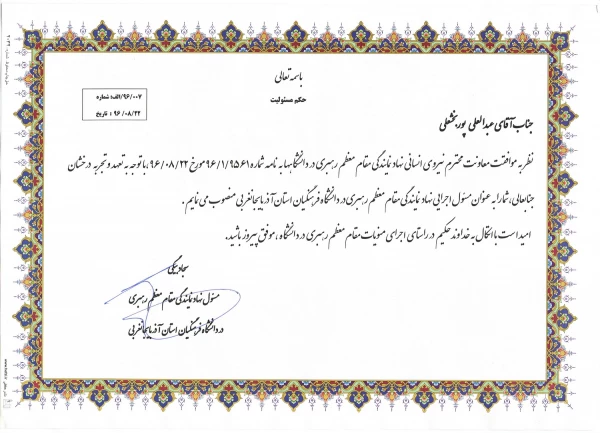 باسمه تعالی
حکم مسئولیت
۹۶/۰۰۷/الف: شماره
۹۶/۰۸/۲۲ : تاریخ
جناب آقای عبدالعلی پوربخشعلی
نظر به موافقت معاونت محترم نیروی انسانی نهاد نمایندگی مقام معظم رهبری در دانشگاهها به نامه شماره ۹۶/۱/۹۵۶۱ مورخ ۹۶/۰۸/۲۲، با توجه به تعهد و تجربه درخشان
جنابعالی، شما را به عنوان مسئول اجرایی نهاد نمایندگی مقام معظم رهبری در دانشگاه فرهنگیان استان آذربایجانغربی منصوب می نمایم.
امید است با اتکال به خداوند حکیم در راستای اجرای منویات مقام معظم رهبری در دانشگاه، موفق پیروز باشید.
سجاد بیگی
مسئول نهاد نمایندگی مقام معظم رهبری
در دانشگاه فرهنگیان استان آذربایجانغربی